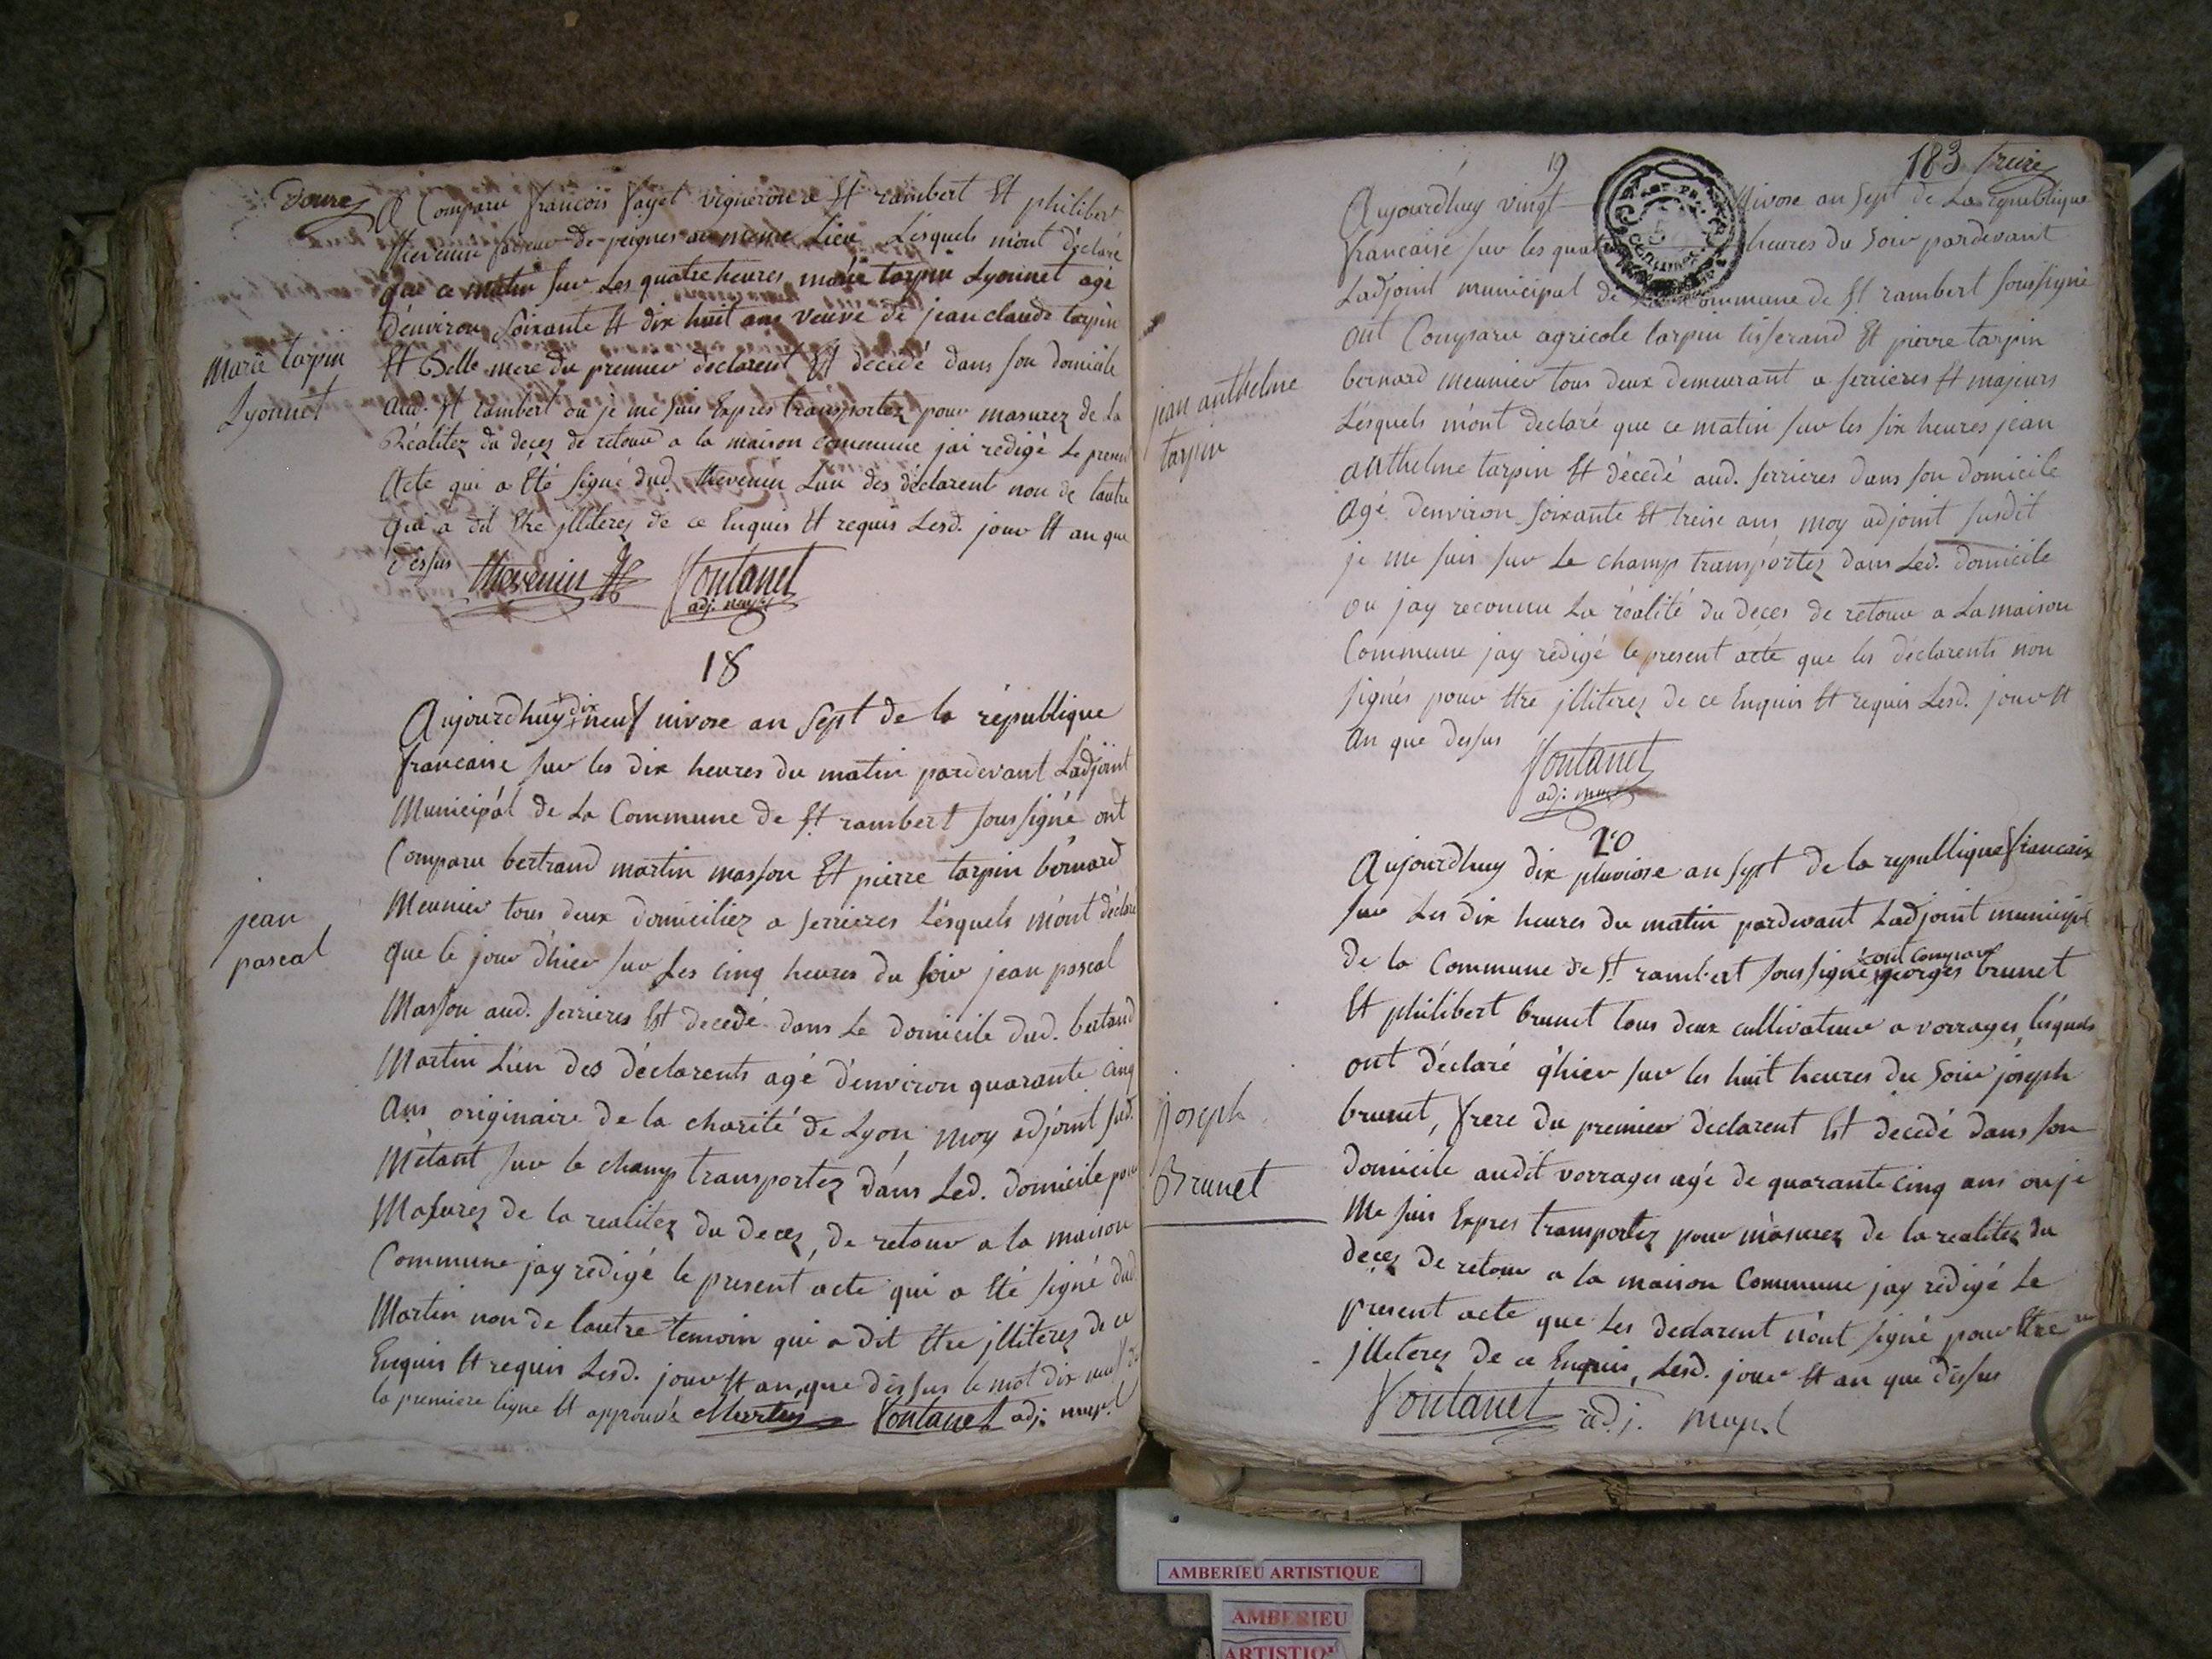 douze
a Comparu françois fayet vigneron a St rambert Et philibert
thevenin faiseur de peignes au meme Lieu Lésquels m'ont déclaré
que ce matin sur Les quatre heures marie tarpin Lyonnet agé
d'environ Soixante Et dix huit ans veuve de jean claude tarpin
Et Belle mere du premier declarent Est décédé dans son domicile
aud. St rambert ou je me suis Exprès transportez pour masurez de La
Réalitez du deces de retour a la maison commune jai redigé Le present
Acte qui a Eté Signé dud. thevenin Lun des déclarent non de lautre
qui a dit Etre jlliterez de ce Enquis Et requis Lesd. jour Et an que
dessus
thevenin fontanet
adj. mupl
Marie tarpin
Lyonnet
18
Aujourdhuy dix neuf nivose an Sept de la république
francaise sur les dix heures du matin pardevant Ladjoint
Municipal de La Commune de St rambert soussigné ont
Comparu bertrand martin masson Et pierre tarpin bernard
Meunier tous deux domiciliez a serrieres Lésquels m'ont déclaré
que le jour d'hier sur Les cinq heures du soir jean pascal
Masson aud. serrieres Est decedé dans Le domicile dud. bertrand
Martin L'un des déclarents agé d'environ quarante cinq
Ans originaire de la charité de Lyon moy adjoint sud.
M'étant sur le champ transportez dans Led. domicile pour
Masurez de la realitez du decez, de retour a la maison
Commune jay redigé le present acte qui a Eté signé dud.
Martin non de lautre temoin qui a dit Etre jlliterez de ce
Enquis Et requis Lesd. jour Et an que dessus le mot dix neuf de
la premiere ligne Et approuvé Martin fontanet adj. mupl
jean
pascal
183 treize
19
Aujourdhuy vingt nivose an sept de La republique
francaise sur les quatre heures du Soir pardevant
Ladjoint municipal de Commune de St rambert soussigné
ont Comparu agricole tarpin tisserand Et pierre tarpin
bernard meunier tous deux demeurant a serrieres Et majeurs
Lésquels m'ont declaré que ce matin sur les six heures jean
anthelme tarpin Et décedé aud. serrieres dans son domicile
agé d'environ soixante Et treise ans moy adjoint susdit
je me suis sur Le champ transportez dans Led. domicile
ou jay reconnu La réalité du deces de retour a La maison
Commune jay redigé le present acte que les déclarents non
signés pour Etre jlliterez de ce Enquis Et requis Lesd. jour Et
an que dessus
fontanet
adj. mupl
jean anthelme
tarpin
20
Aujourdhuy dix pluviose an sept de la republique francaise
sur Les dix heures du matin pardevant Ladjoint municipl
de la Commune de St rambert soussigné ont comparu georges brunet
Et philibert brunet tous deux cultivateur a vorrages, lesquels
ont déclaré q'hier sur les huit heures du Soir joseph
brunet, frere du premier declarent Est decedé dans son
domicile audit vorrages agé de quarante cinq ans ou je
Me suis Expres transportez pour m'asurez de la realitez du
decez de retour a la maison Commune jay redigé Le
present acte que Les declarent n'ont signé pour Etre
jlleterez de ce Enquis, Lesd. jour Et an que dessus
fontanet adj. mupl
joseph
Brunet
AMBERIEU ARTISTIQUE
AMBERIEU
ARTISTIQU